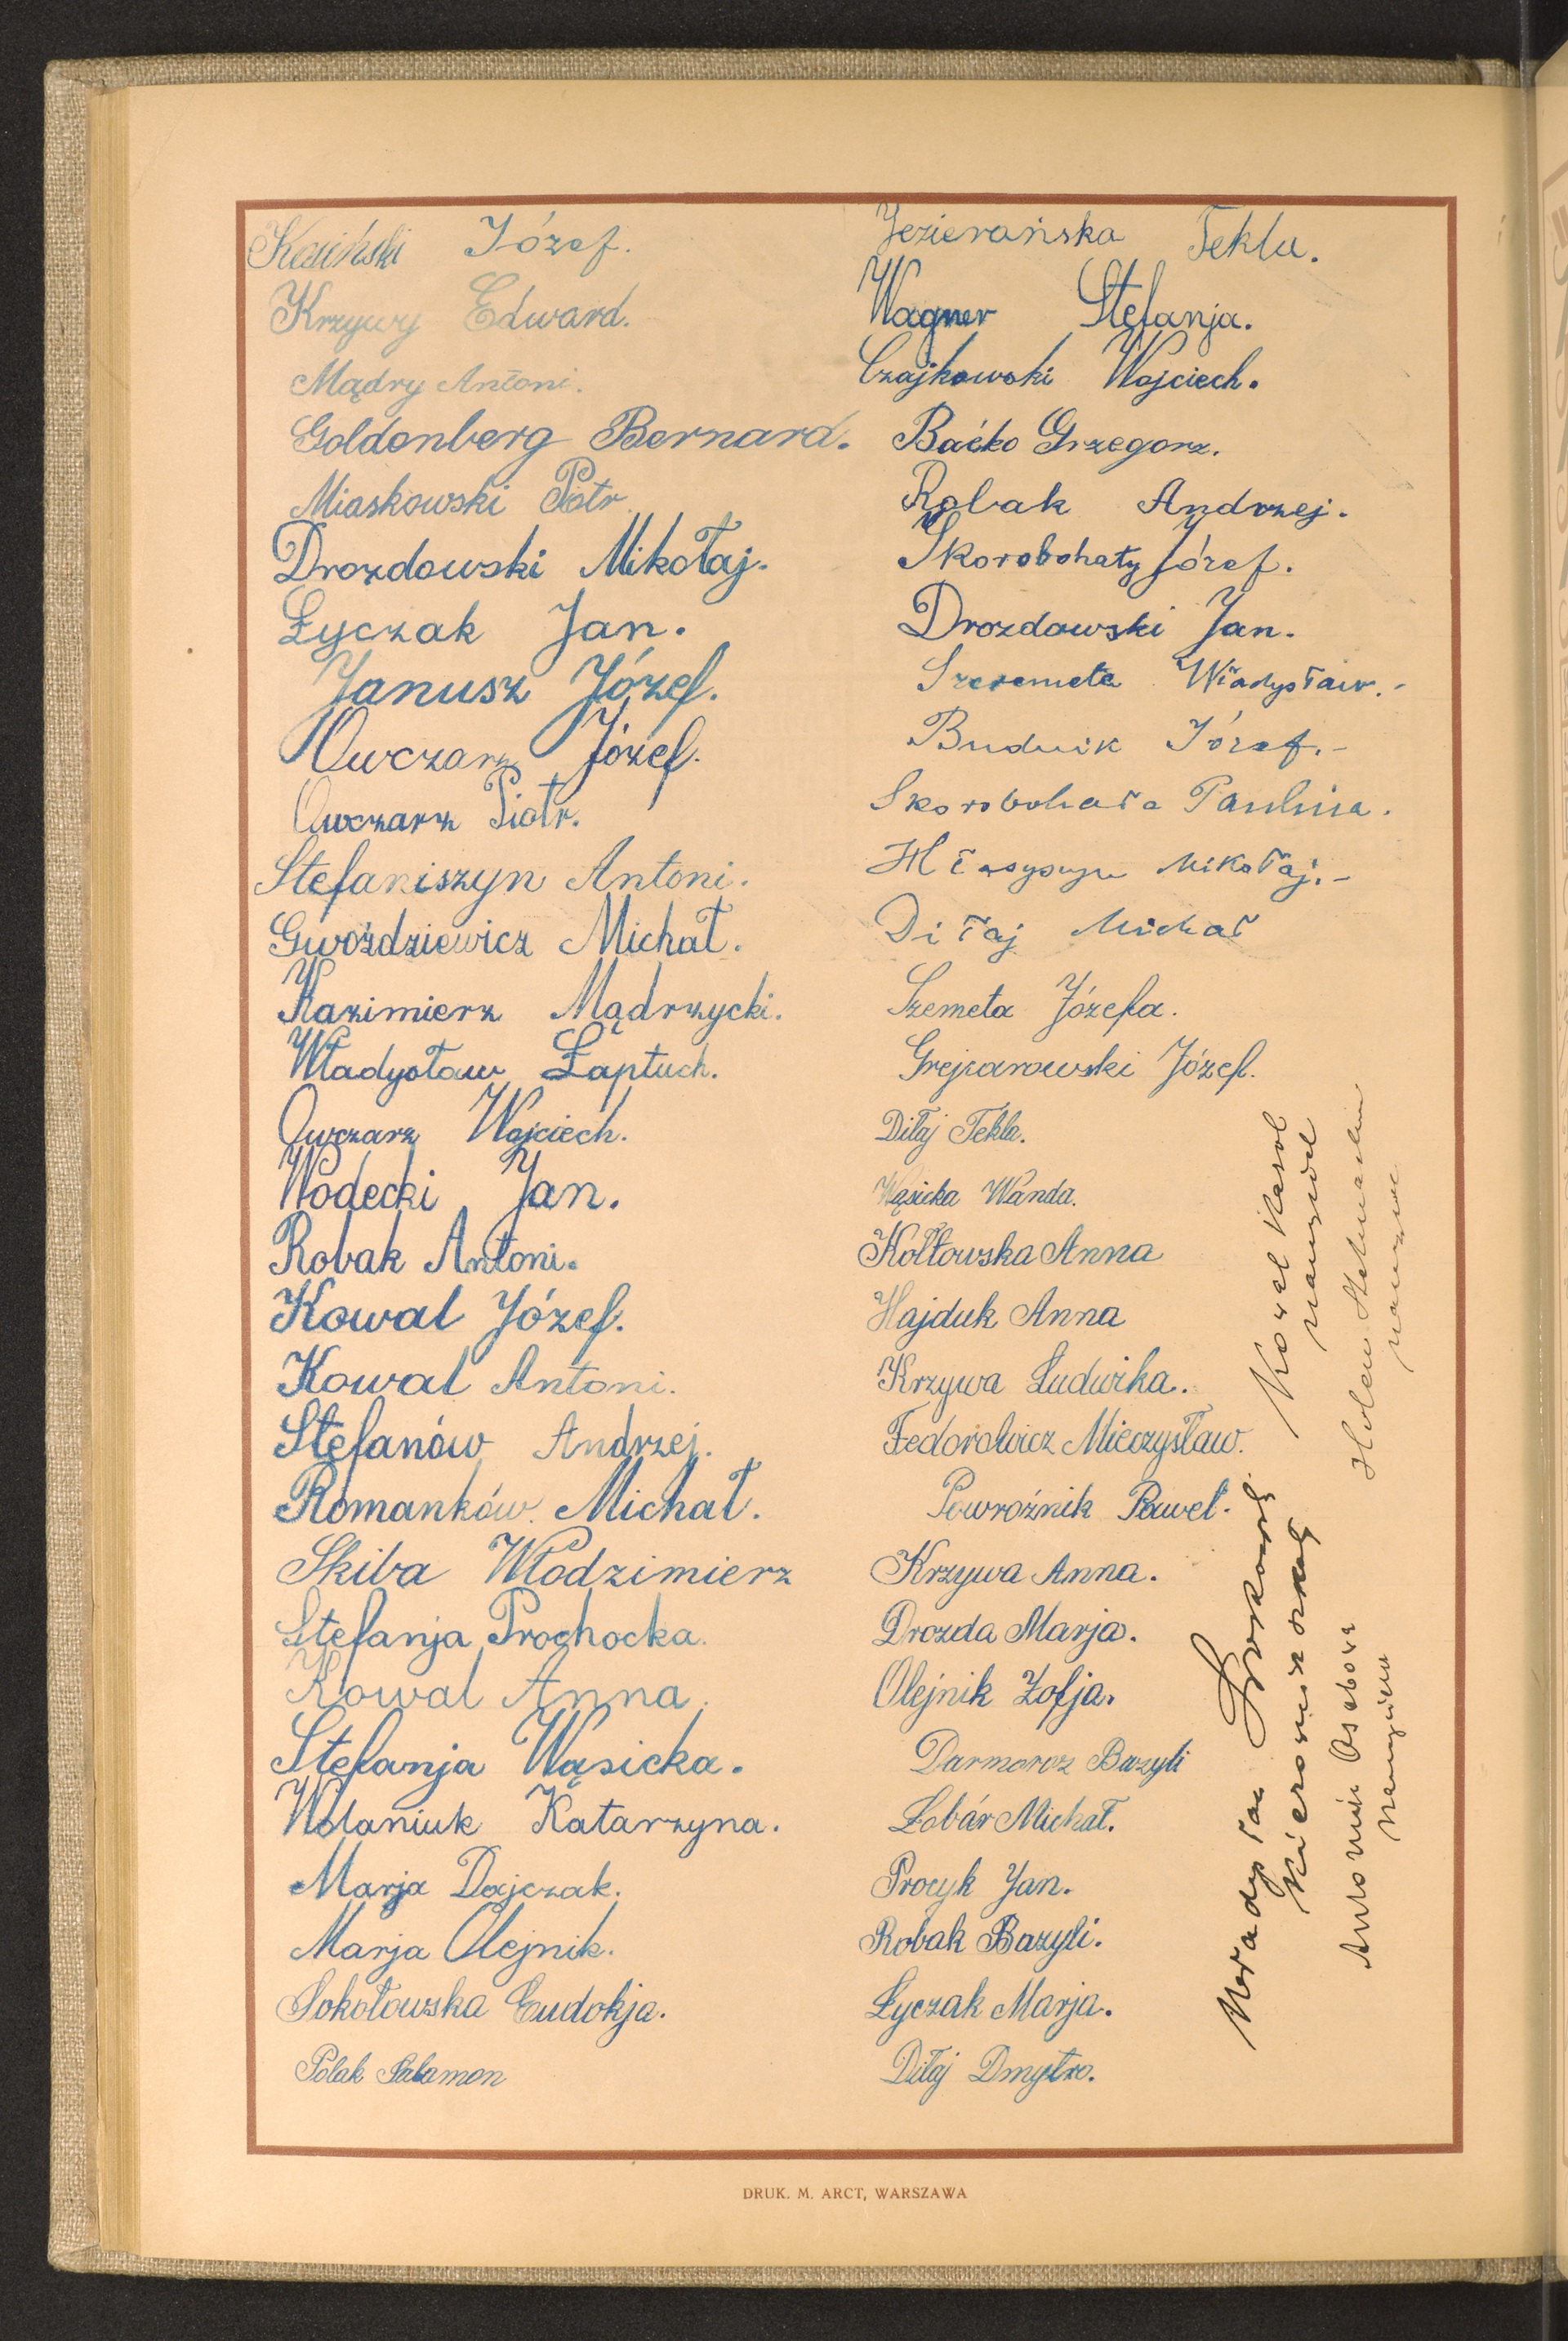 Kasiński Józef.
Krzywy Edward.
Mądry Antoni.
Goldenberg Bernard.
Miaskowski Piotr
Drozdowski Mikołaj.
Łyczak Jan.
Janusz Józef.
Owczarz Józef.
Owczarz Piotr.
Stefaniszyn Antoni.
Gwoździewicz Michał.
Kazimierz Mądrzycki.
Władysław Łaptuch.
Owczarz Wojciech.
Wodecki Jan.
Robak Antoni.
Kowal Józef.
Kowal Antoni.
Stefanów Andrzej.
Romanków Michał.
Skiba Włodzimierz
Stefanja Prochocka.
Kowal Anna.
Stefanja Wąsicka.
Wołaniuk Katarzyna.
Marja Dajczak.
Marja Olejnik.
Sokołowska Eudokja.
Polak Salamon
Jezierańska Tekla.
Wagner Stefanja.
Czajkowski Wojciech.
Baćko Grzegorz.
Robak Andrzej.
Skorobohaty Józef.
Drozdowski Jan.
Szeremeta Władysław.-
Budnik Józef.-
Skorobohata Paulina.
Mikołaj.-
Diłaj Michał
Szemeta Józefa.
Grejcarowski Józef.
Diłaj Tekla.
Wąsicka Wanda.
Kołtowska Anna
Hajduk Anna
Krzywa Ludwika.
Fedorowicz Mieczysław.
Powroźnik Paweł.
Krzywa Anna.
Drozda Marja.
Olejnik Zofja.
Darmoroz Bazyli
Łobár Michał.
Procyk Jan.
Robak Bazyli.
Łyczak Marja.
Diłaj Dmytro.
kierownik szkoły
Antonina Osadowa
Kowal Karol
DRUK. M. ARCT, WARSZAWA